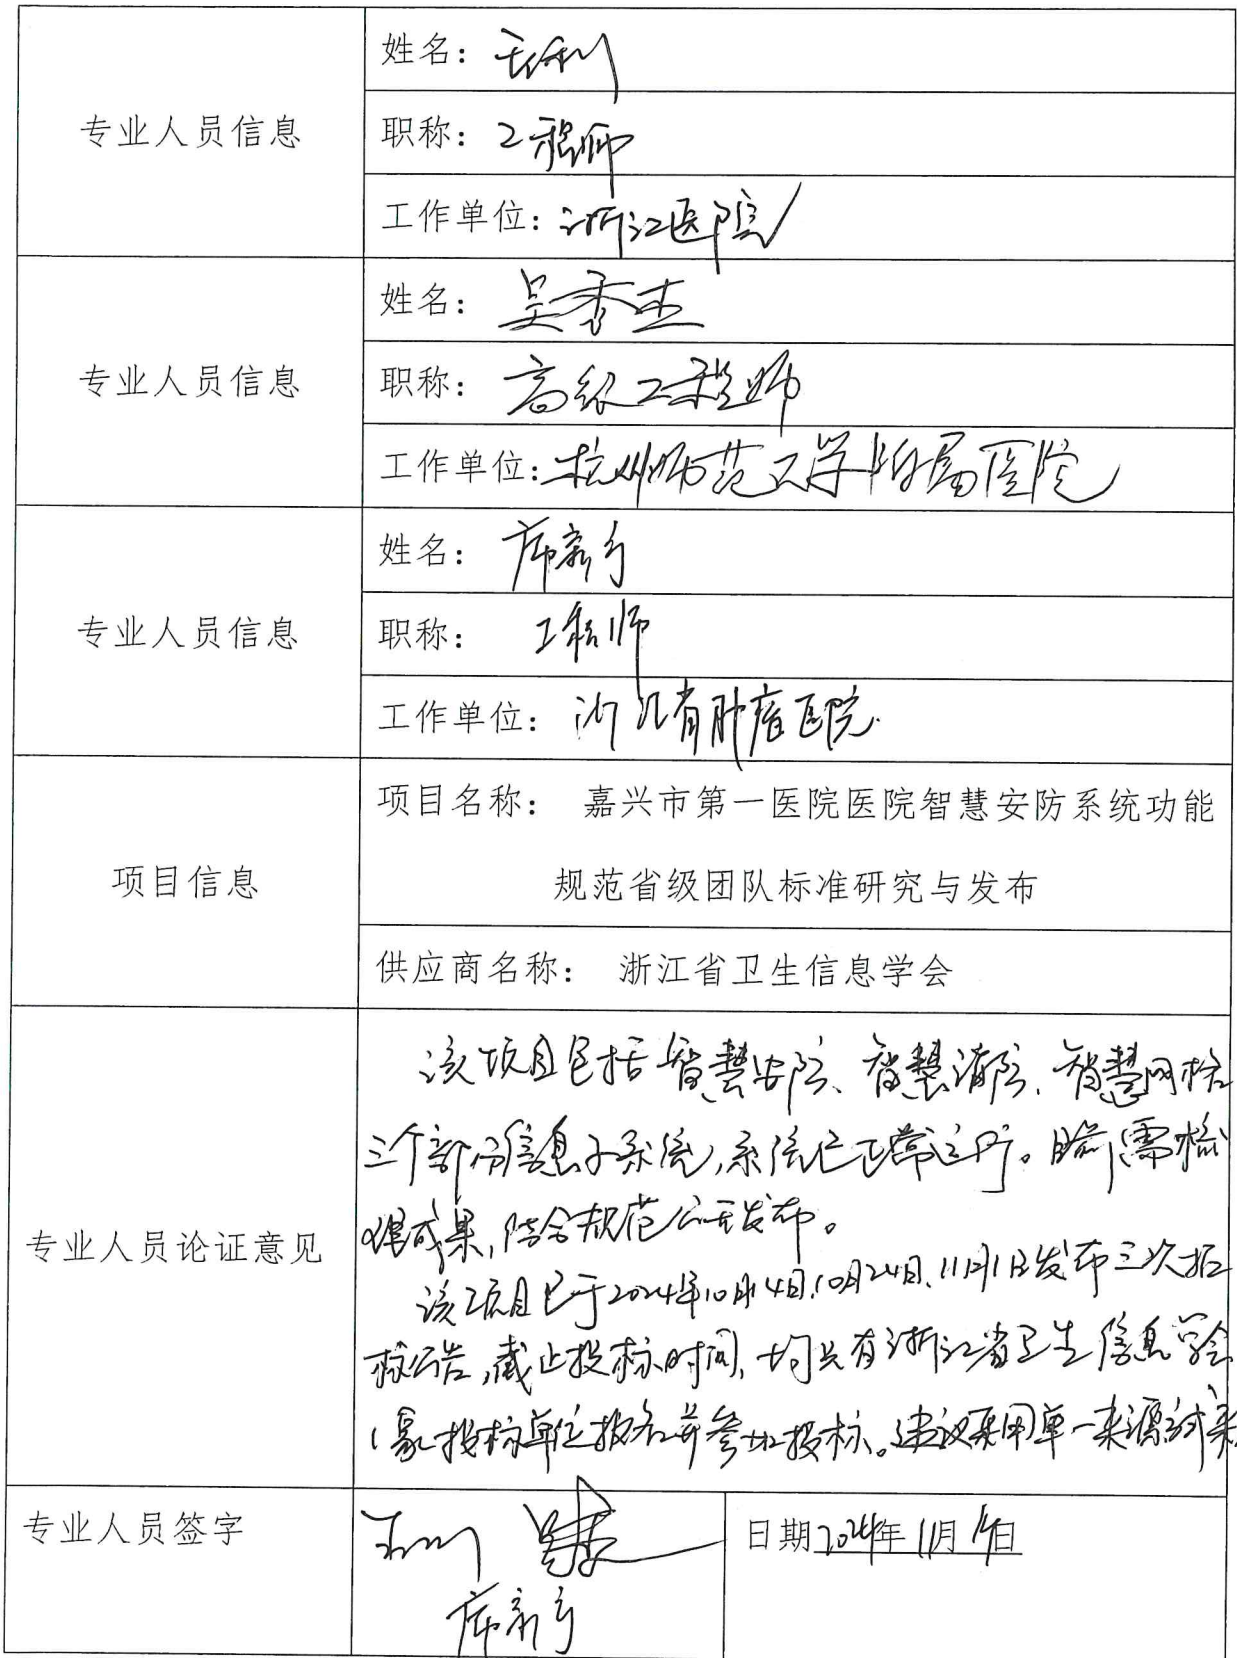 专业人员信息
姓名：
职称：工程师
工作单位：浙江医院
专业人员信息
姓名：吴秀杰
职称：高级工程师
工作单位：杭州师范大学附属医院
专业人员信息
姓名：席新
职称：工程师
工作单位：浙江省肿瘤医院
项目信息
项目名称： 嘉兴市第一医院医院智慧安防系统功能
规范省级团队标准研究与发布
供应商名称： 浙江省卫生信息学会
专业人员论证意见
该项目包括智慧安防、智慧消防、智慧网格
三个部份信息子系统,系统已正常运行。目前需
成果,结合规范公开发布。
该项目已于2024年10月4日、10月24日、11月1日发布三次招
标公告,截止投标时间,均只有浙江省卫生信息学会
1家投标单位报名并参加投标。建议采用单一来源
专业人员签字
席新
日期2024年11月 日